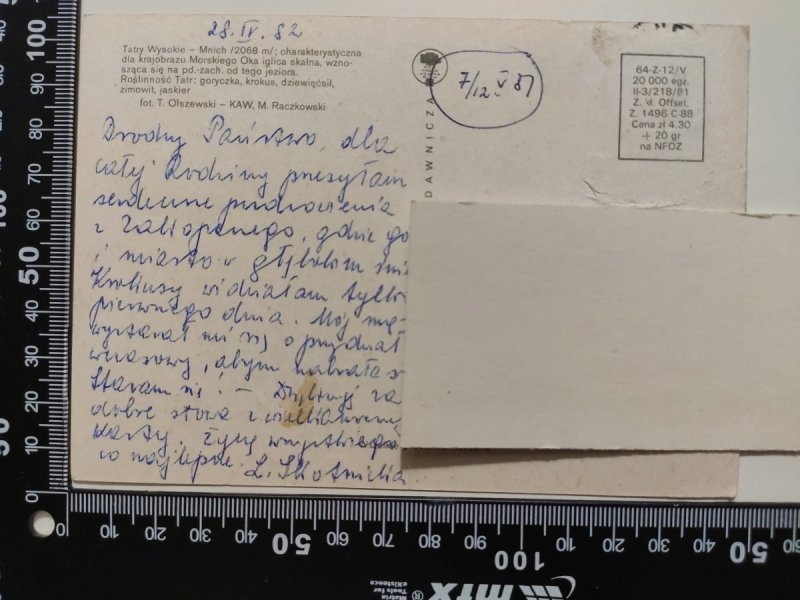 28.IV.82
Tatry Wysokie – Mnich /2068 m/; charakterystyczna
dla krajobrazu Morskiego Oka iglica skalna, wzno-
sząca się na pd.-zach. od tego jeziora.
Roślinność Tatr: goryczka, krokus, dziewięćsił,
zimowit, jaskier
fot. T. Olszewski – KAW, M. Raczkowski
Drodzy Państwo, dla
całej Rodziny przesyłam
serdeczne pozdrowienia
z Zakopanego, gdzie gó
i miasto w głębokim śni
Krokusy widziałam tylko
pierwszego dnia. Mój mę-
wystarał mi się o przydział
wczasowy, abym nabrała s
Staram się! – Dziękuję za
dobre słowa i wielkanocną
kartę. Życzę wszystkiego
co najlepsze. L. Skotnicka
DAWNICZA
7/12 V 81
64-Z-12/V
20 000 egz.
II-3/218/81
Z. kł. Offset.
Z. 1496 C-88
Cena zł 4.30
+ 20 gr
na NFOZ
100
90
80
70
60
50
40
30
20
10
0
0
10
20
30
40
50
60
70
80
90
100
10
20
30
40
50
mtx®
Matrix
Tools for
eXistence